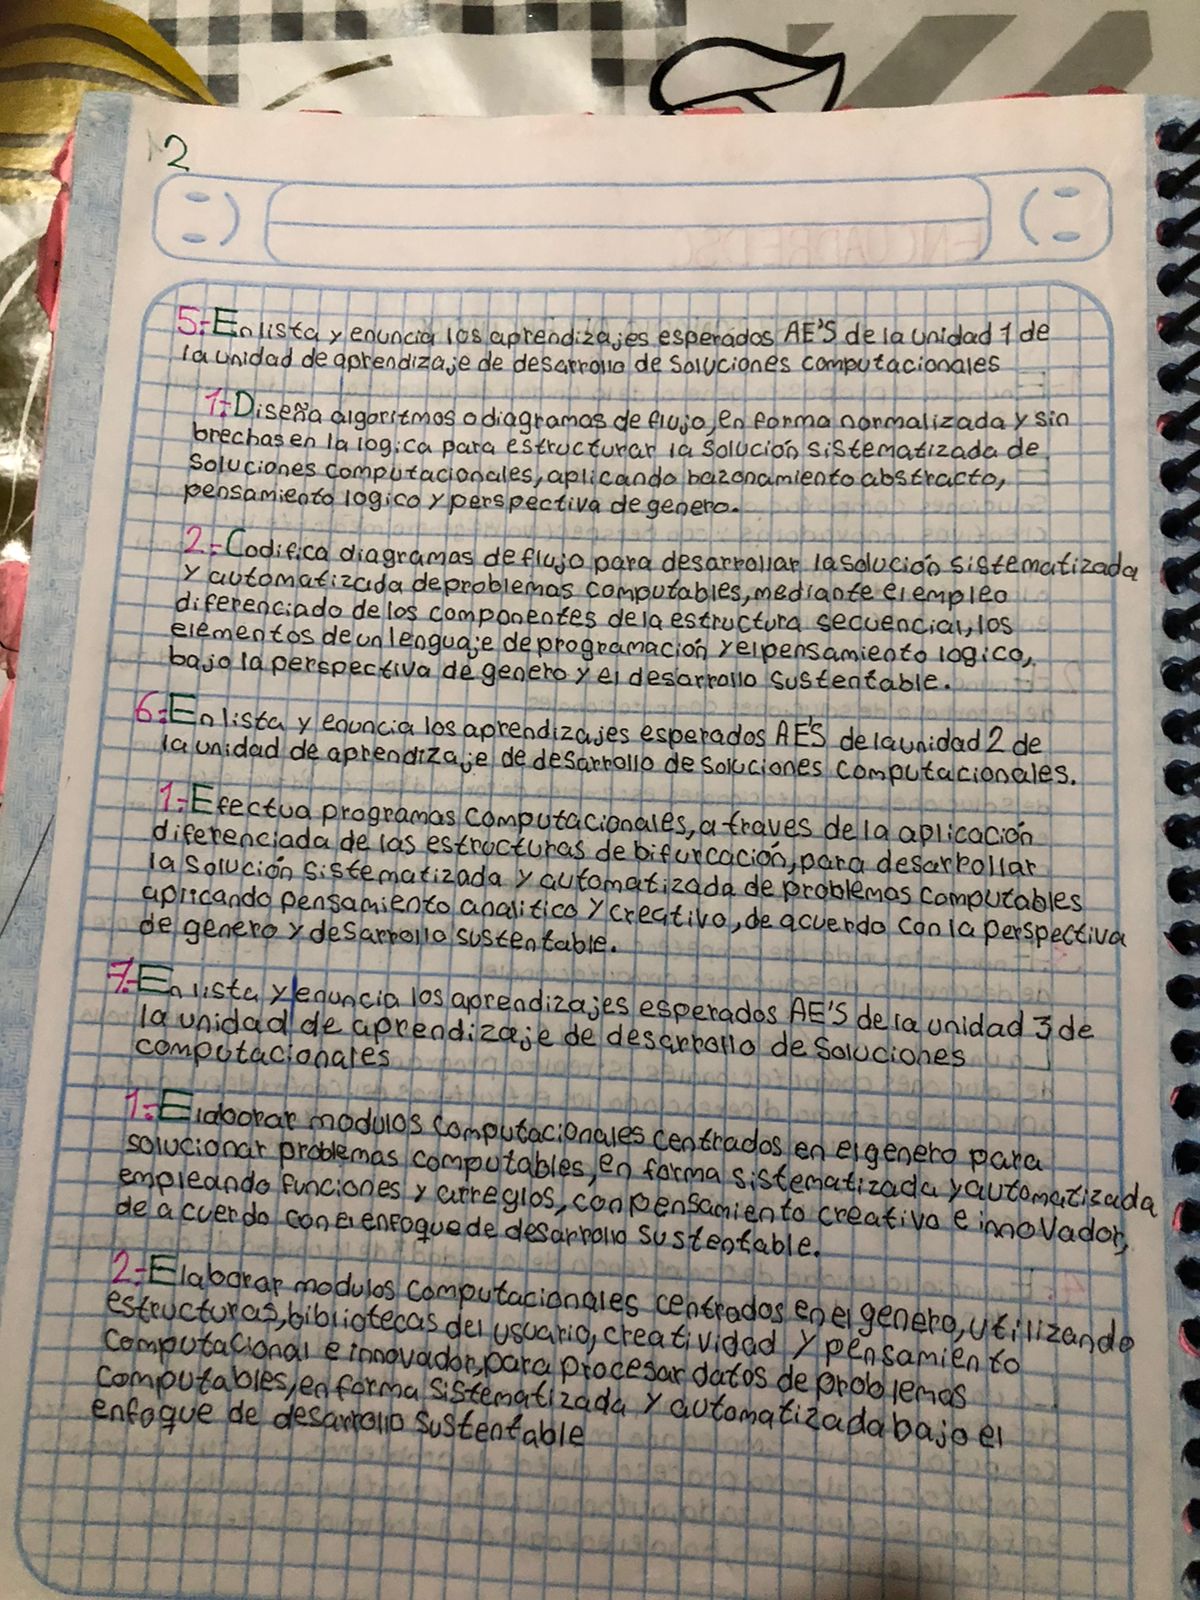 2
5.-Enlista y enuncia los aprendizajes esperados AE'S de la unidad 1 de
la unidad de aprendizaje de desarrollo de soluciones computacionales
1.-Diseña algoritmos o diagramas de flujo, en forma normalizada y sin
brechas en la logica para estructurar la solución sistematizada de
soluciones computacionales, aplicando bazonamiento abstracto,
pensamiento logico y perspectiva de genero.
2.-Codifica diagramas de flujo para desarrollar la solución sistematizada
y automatizada de problemas computables, mediante el empleo
diferenciado de los componentes de la estructura secuencial, los
elementos de un lenguaje de programación y el pensamiento logico,
bajo la perspectiva de genero y el desarrollo sustentable.
6.-Enlista y enuncia los aprendizajes esperados AE'S de la unidad 2 de
la unidad de aprendizaje de desarrollo de soluciones computacionales.
1.-Efectua programas computacionales, a traves de la aplicación
diferenciada de las estructuras de bifurcación, para desarrollar
la solución sistematizada y automatizada de problemas computables
aplicando pensamiento analitico y creativo, de acuerdo con la perspectiva
de genero y desarrollo sustentable.
7.-Enlista y enuncia los aprendizajes esperados AE'S de la unidad 3 de
la unidad de aprendizaje de desarrollo de soluciones
computacionales
1.-Elaborar modulos computacionales centrados en el genero para
solucionar problemas computables, en forma sistematizada y automatizada
empleando funciones y arreglos, con pensamiento creativo e innovador,
de acuerdo con el enfoque de desarrollo sustentable.
2.-Elaborar modulos computacionales centrados en el genero, utilizando
estructuras, bibliotecas del usuario, creatividad y pensamiento
computacional e innovador, para procesar datos de problemas
computables, en forma sistematizada y automatizada bajo el
enfoque de desarrollo sustentable